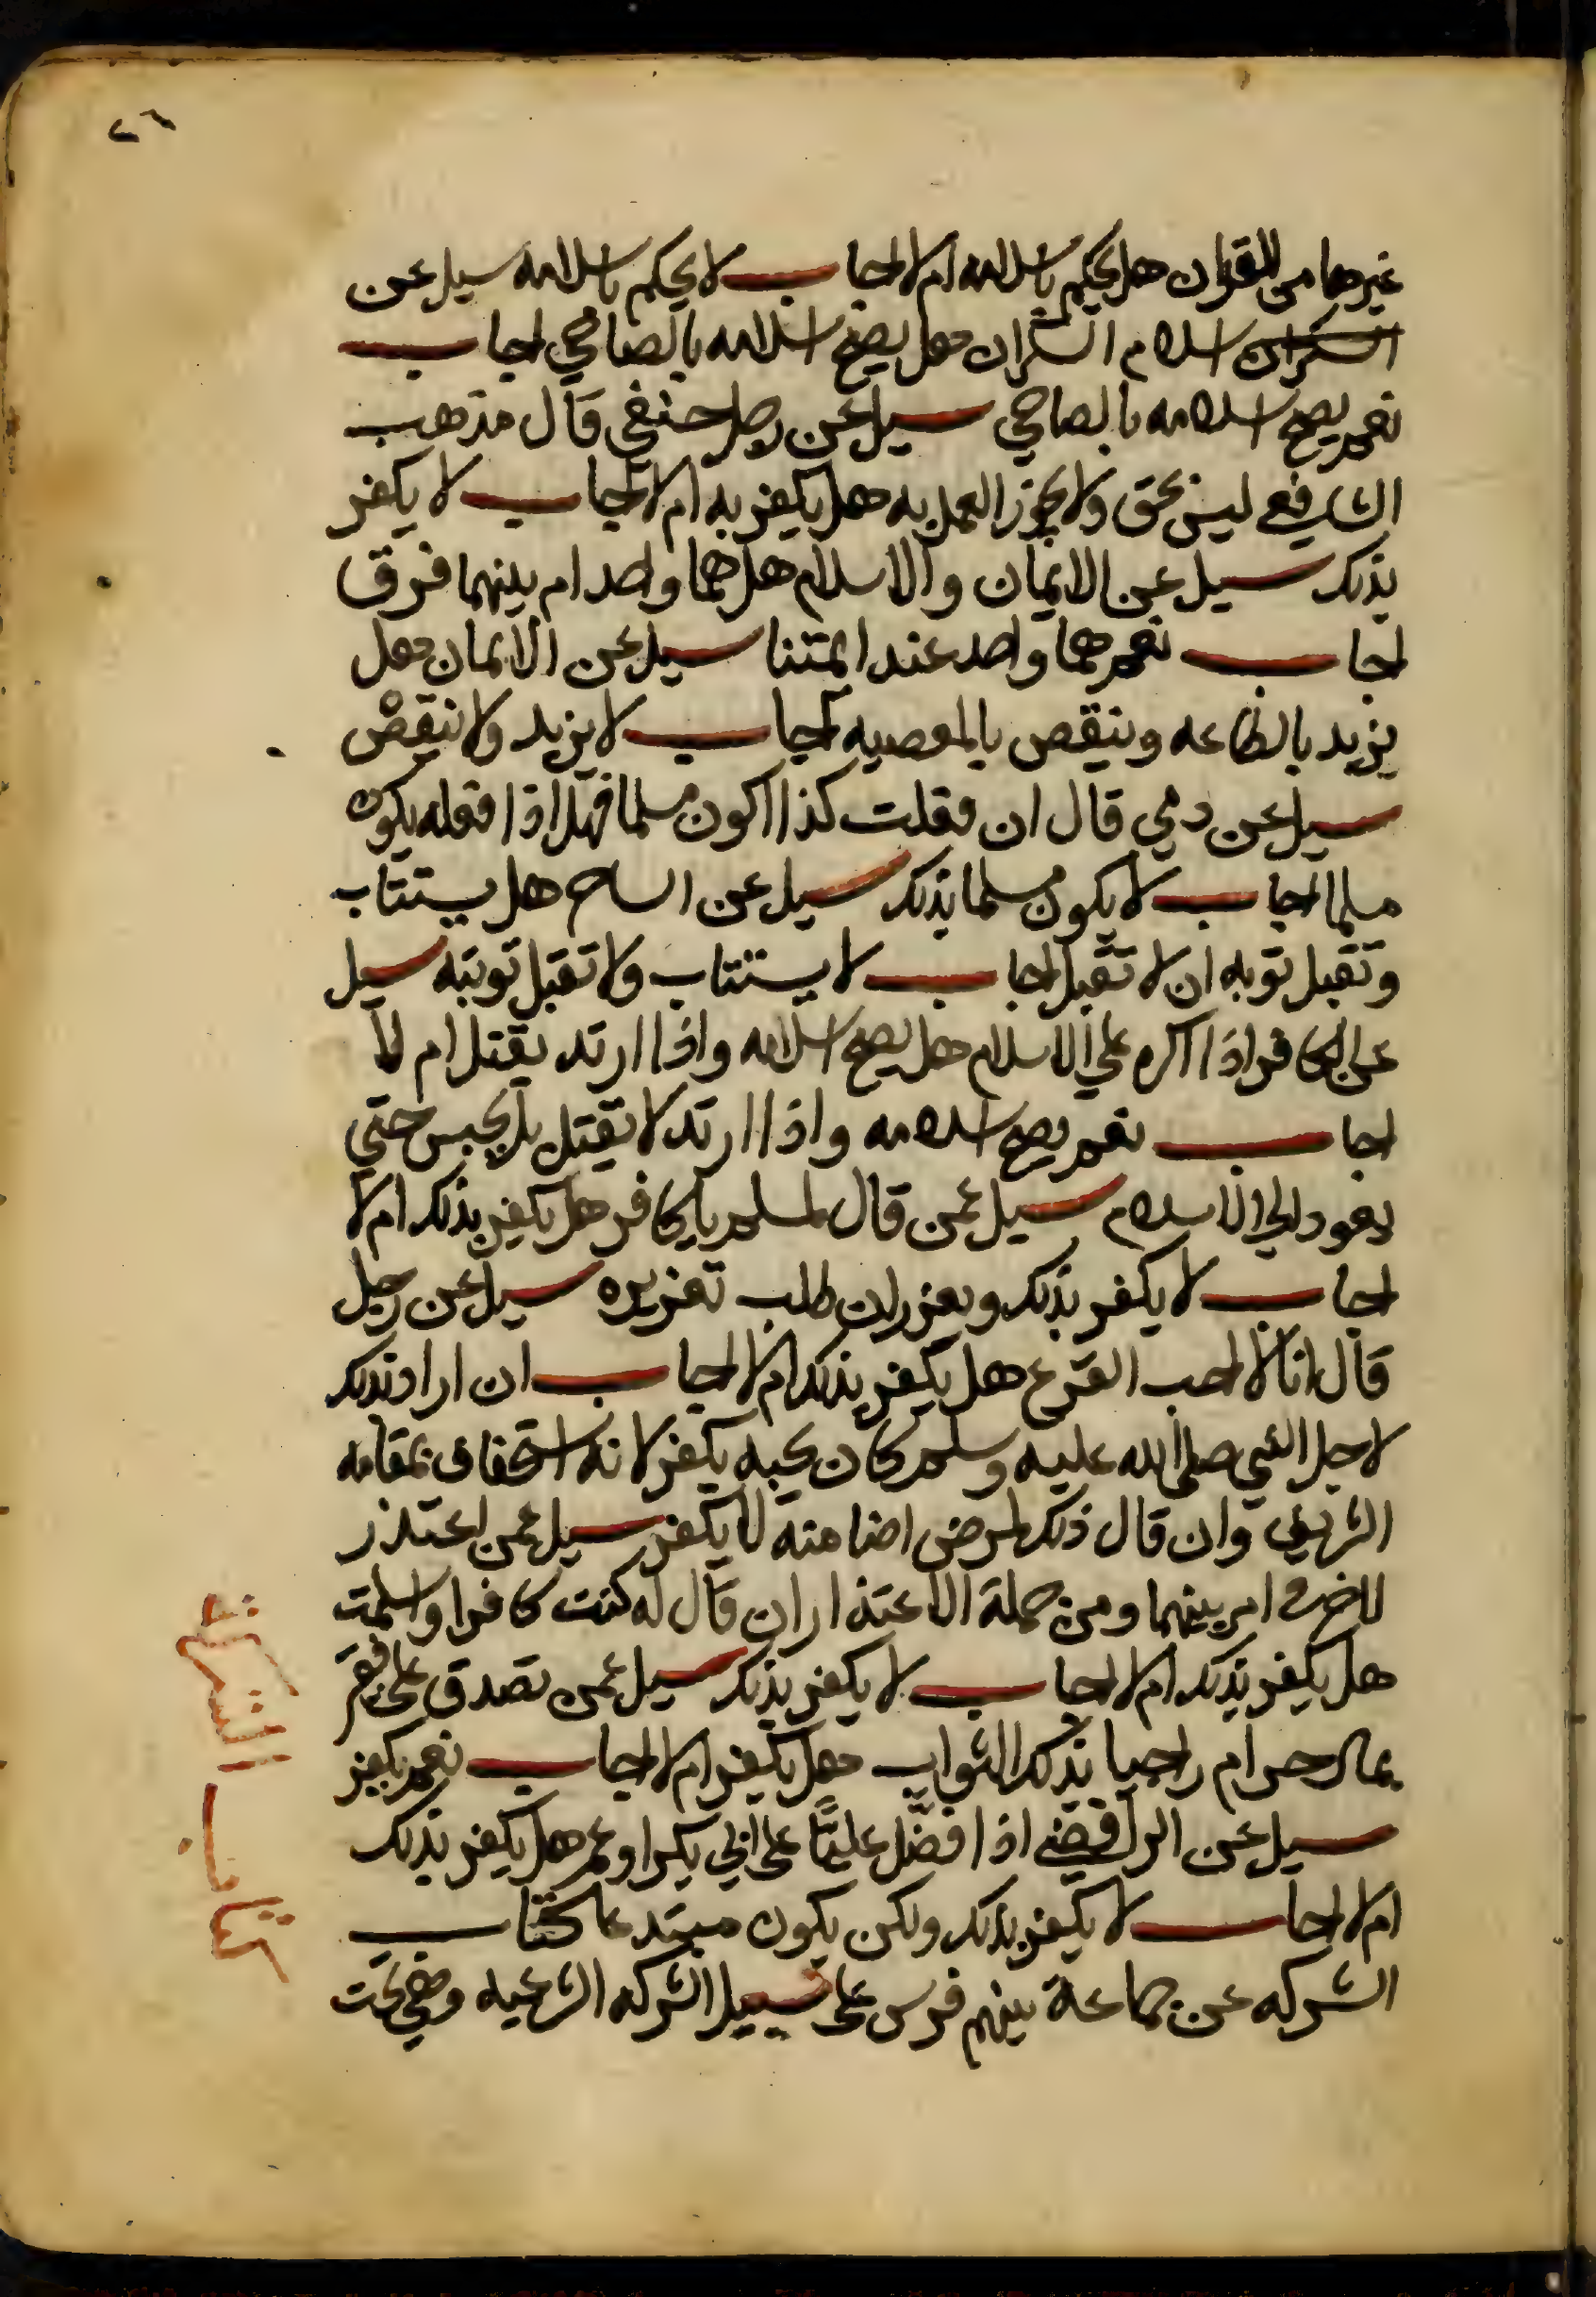 ٢٦
غيرهما من القران هل يحكم باسلامه ام لا اجاب لا يحكم باسلامه سيل عن
السكران اسلام السكران هل يصح اسلامه بالصاحي اجاب
نعم يصح اسلامه بالصاحي سيل عن رجل حنفي قال مذهب
الشافعي ليس بحق ولا يجوز العمل به هل يكفر به ام لا اجاب لا يكفر
بذلك سيل عن الايمان والاسلام هل هما واحد ام بينهما فرق
اجاب نعم هما واحد عند ايمتنا سيل عن الايمان هل
يزيد بالطاعه وينقص بالمعصيه اجاب لا يزيد ولا ينقص
سيل عن ذمي قال ان فعلت كذا اكون مسلما فهل اذا فعله يكون
مسلما اجاب لا يكون مسلما بذلك سيل عن الساحر هل يستتاب
وتقبل توبه ان لا تقبل اجاب لا يستتاب ولا تقبل توبته سيل
عن الكافر اذا اكره علي الاسلام هل يصح اسلامه واذا ارتد يقتل ام لا
اجاب نعم يصح اسلامه واذا ارتد لا يقتل بل يحبس حتي
يعود الي الاسلام سيل عمن قال لمسلم يا كافر هل يكفر بذلك ام لا
اجاب لا يكفر بذلك ويعزر ان طلب تعزيره سيل عن رجل
قال انا لا احب القرع هل يكفر بذلك ام لا اجاب ان اراد بذلك
لاجل النبي صلي الله عليه وسلم كان يحبه يكفر لانه استخفاف بمقامه
الشريف وان قال ذلك لمرض اضا منه لا يكفر سيل عمن اعتذر
لاخر امر بينهما ومن جملة الاعتذار ان قال له كنت كافرا واسلمت
هل يكفر بذلك ام لا اجاب لا يكفر بذلك سيل عمن تصدق علي فقير
بمال حرام راجيا بذلك الثواب هل يكفر ام لا اجاب نعم يكفر
سيل عن الرافضي اذا فضل عليا علي ابي بكر او عمر هل يكفر بذلك
ام لا اجاب لا يكفر بذلك ولكن يكون مبتدعا كتاب
الشركه عن جماعة بينهم فرس علي سبيل الشركه الشرعيه وهي تحت
كتاب الشركة